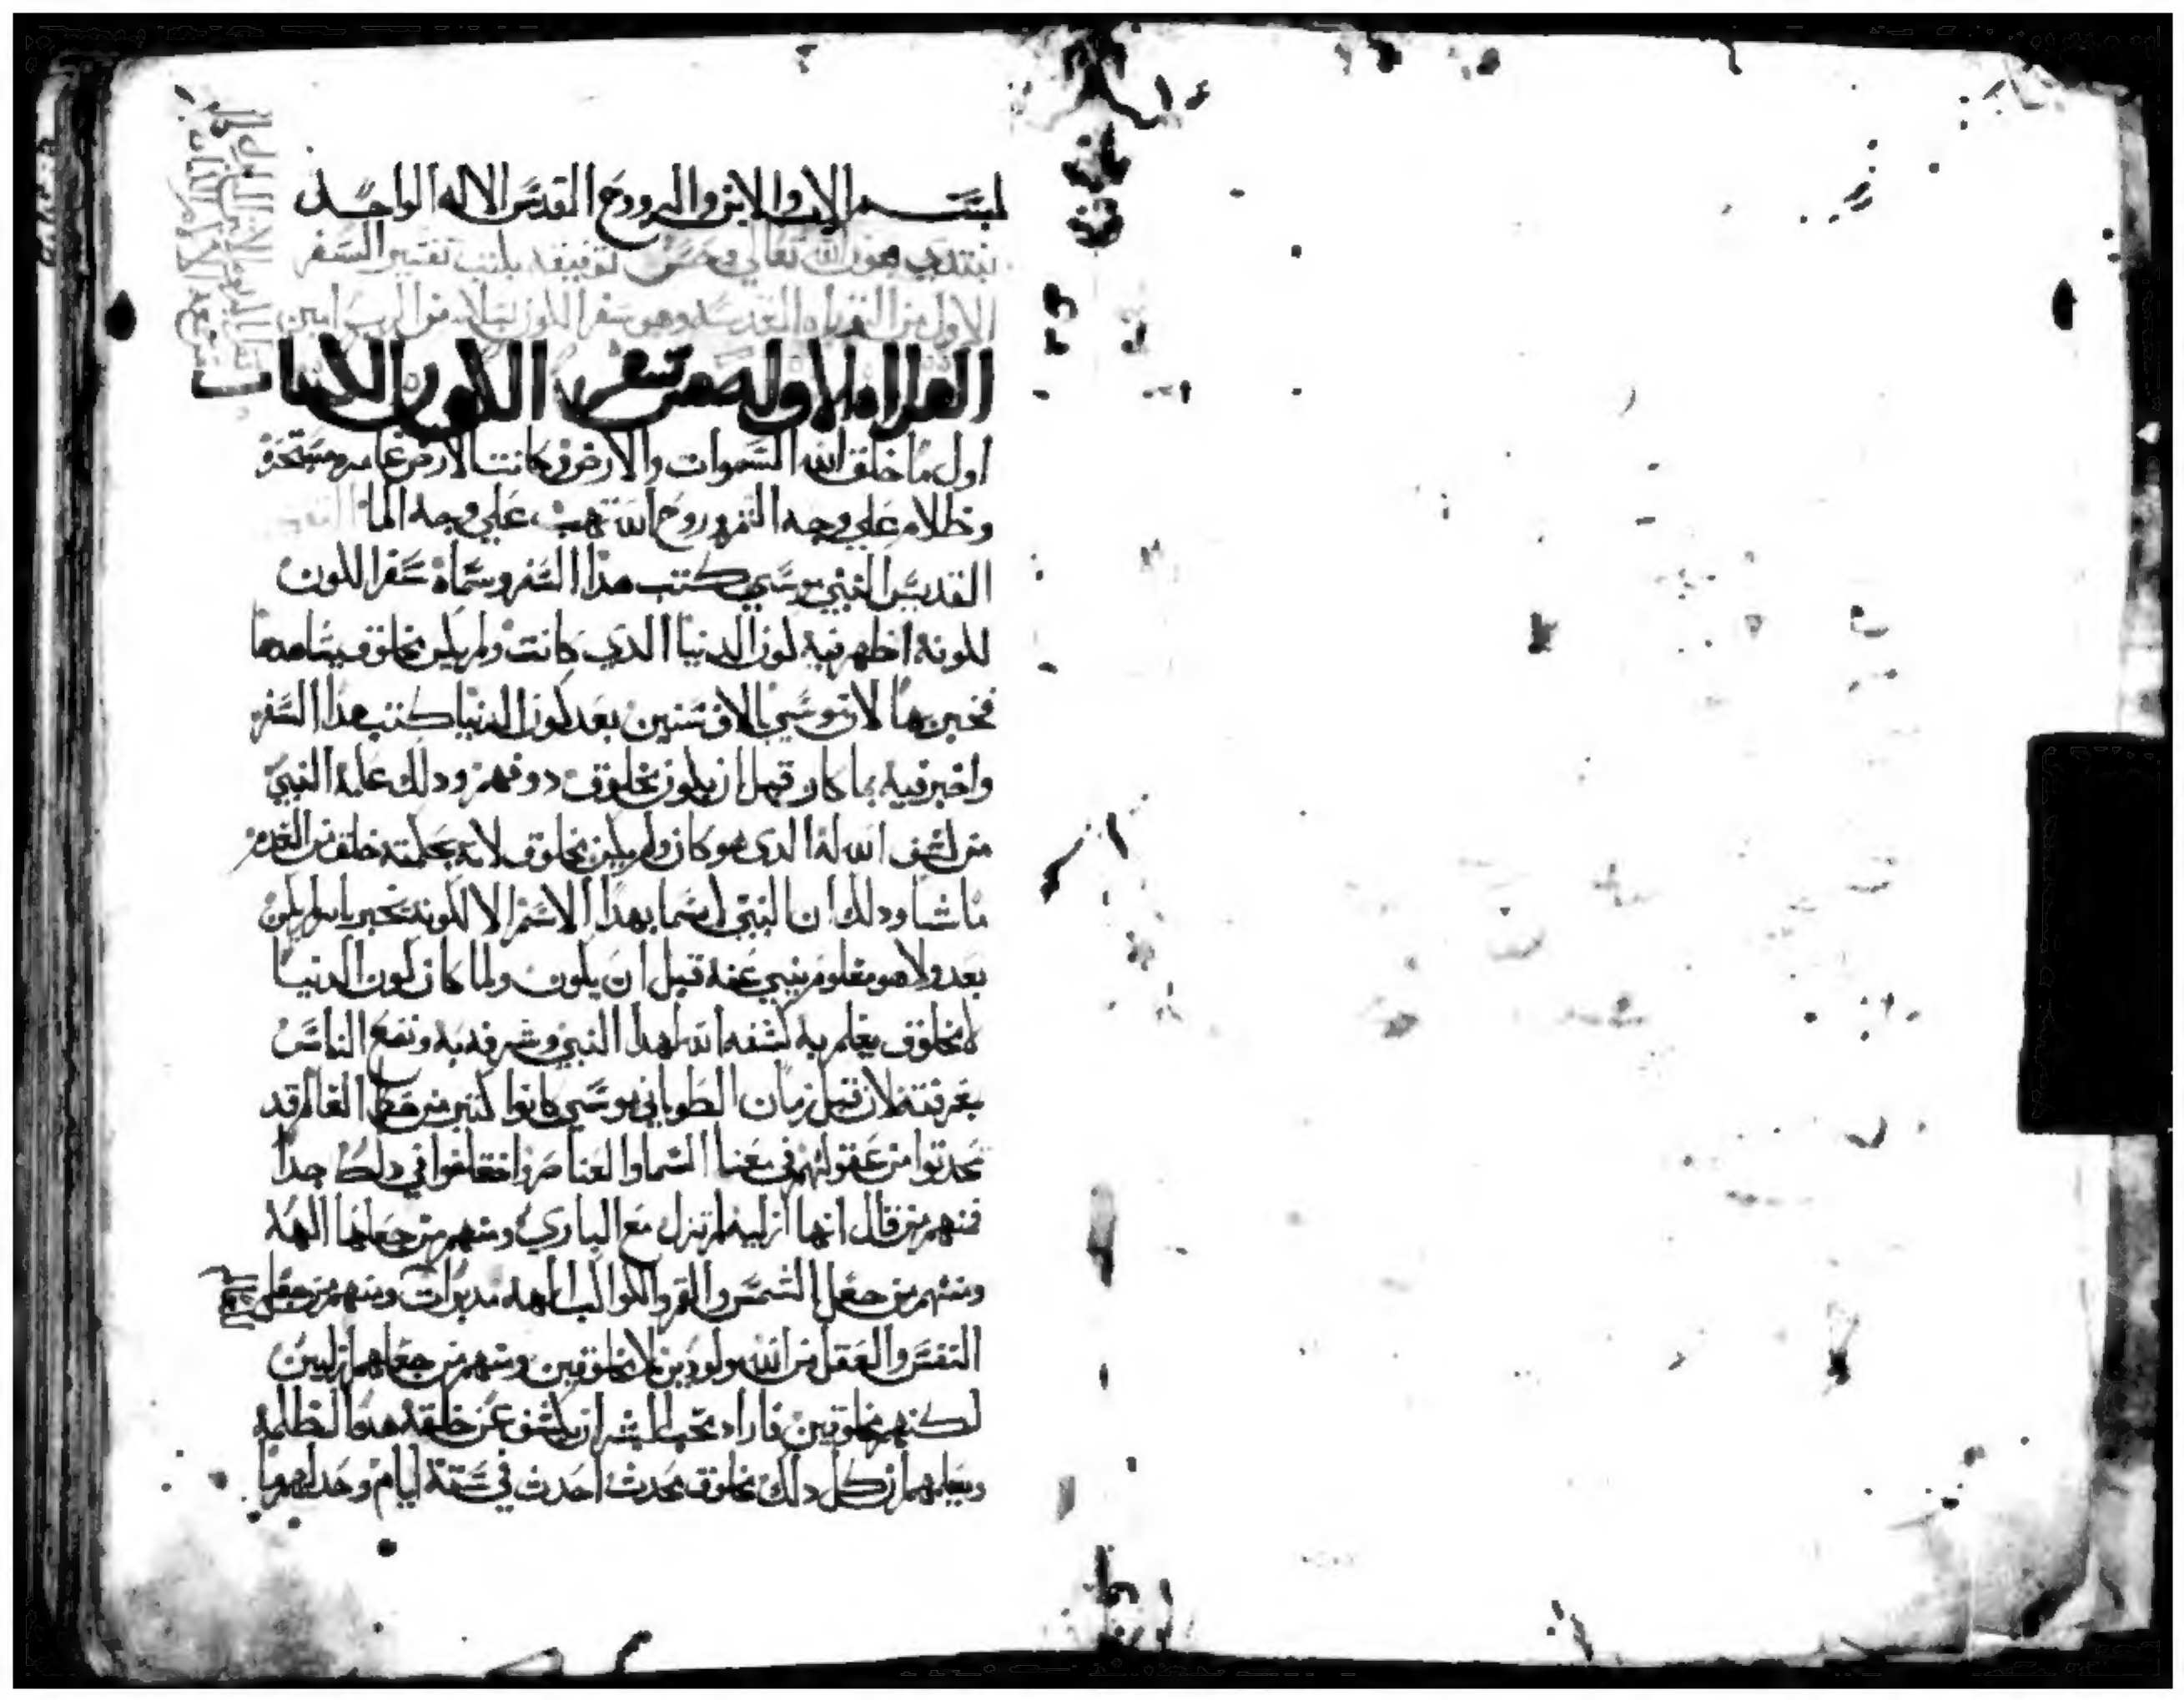 بسم الاب والابن والروح القدس الاله الواحد
نبتدي بعون الله تعالي وحسن توفيقه بكتب تفسير السفر
الاول من التوراه المقدسه وهو سفر الكون بسلام من الرب امين
القراه الاوله من سفر الكون
اول ما خلق الله السموات والارض وكانت الارض غامره مستبحره
وظلام علي وجه الغمر وروح الله تهب علي وجه الما
القديس النبي موسي كتب هذا السفر وسماه سفر الكون
لكونه اظهر فيه كون الدنيا الذي كانت ولم يكن مخلوق يشاهدها
فخبر بها لان موسي بالاف سنين بعد كون الدنيا كتب هذا السفر
واخبر فيه بما كان قبل ان يكون مخلوق دو فهم ودلك علمه النبي
من كشف الله له الدي هو كان ولم يكن مخلوق لانه بحكمته خلق من العدم
ما شا ودلك ان النبي لم يسما بهذا الاسم الا لكونه يخبر بما لم يكن
بعد ولا هو معلوم ينبي عنه قبل ان يكون ولما كان كون الدنيا
لا مخلوق يعلم به كشفه الله لهدا النبي وشرفه به ونفع الناس
بمعرفته لان قبل زمان الطوباني موسي كانوا كتير من حكما العالم قد
تحدتوا من عقولهم في معنا السما والعناصر واختلفوا في دلك جدا
فمنهم من قال انها ازليه لم تزل مع الباري ومنهم من جعلها الهه
ومنهم من جعل الشمس والقمر والكواكب الهه مدبرات ومنهم من جعل
النفس والعقل من الله مولودين لا مخلوقين ومنهم من جعلهم ازليين
لكنهم مخلوقين فاراد محب البشر ان يكشف عن خلقه هده الظلمه
ويعلمهم ان كل دلك مخلوق محدث احدث في ستة ايام وحد لهم